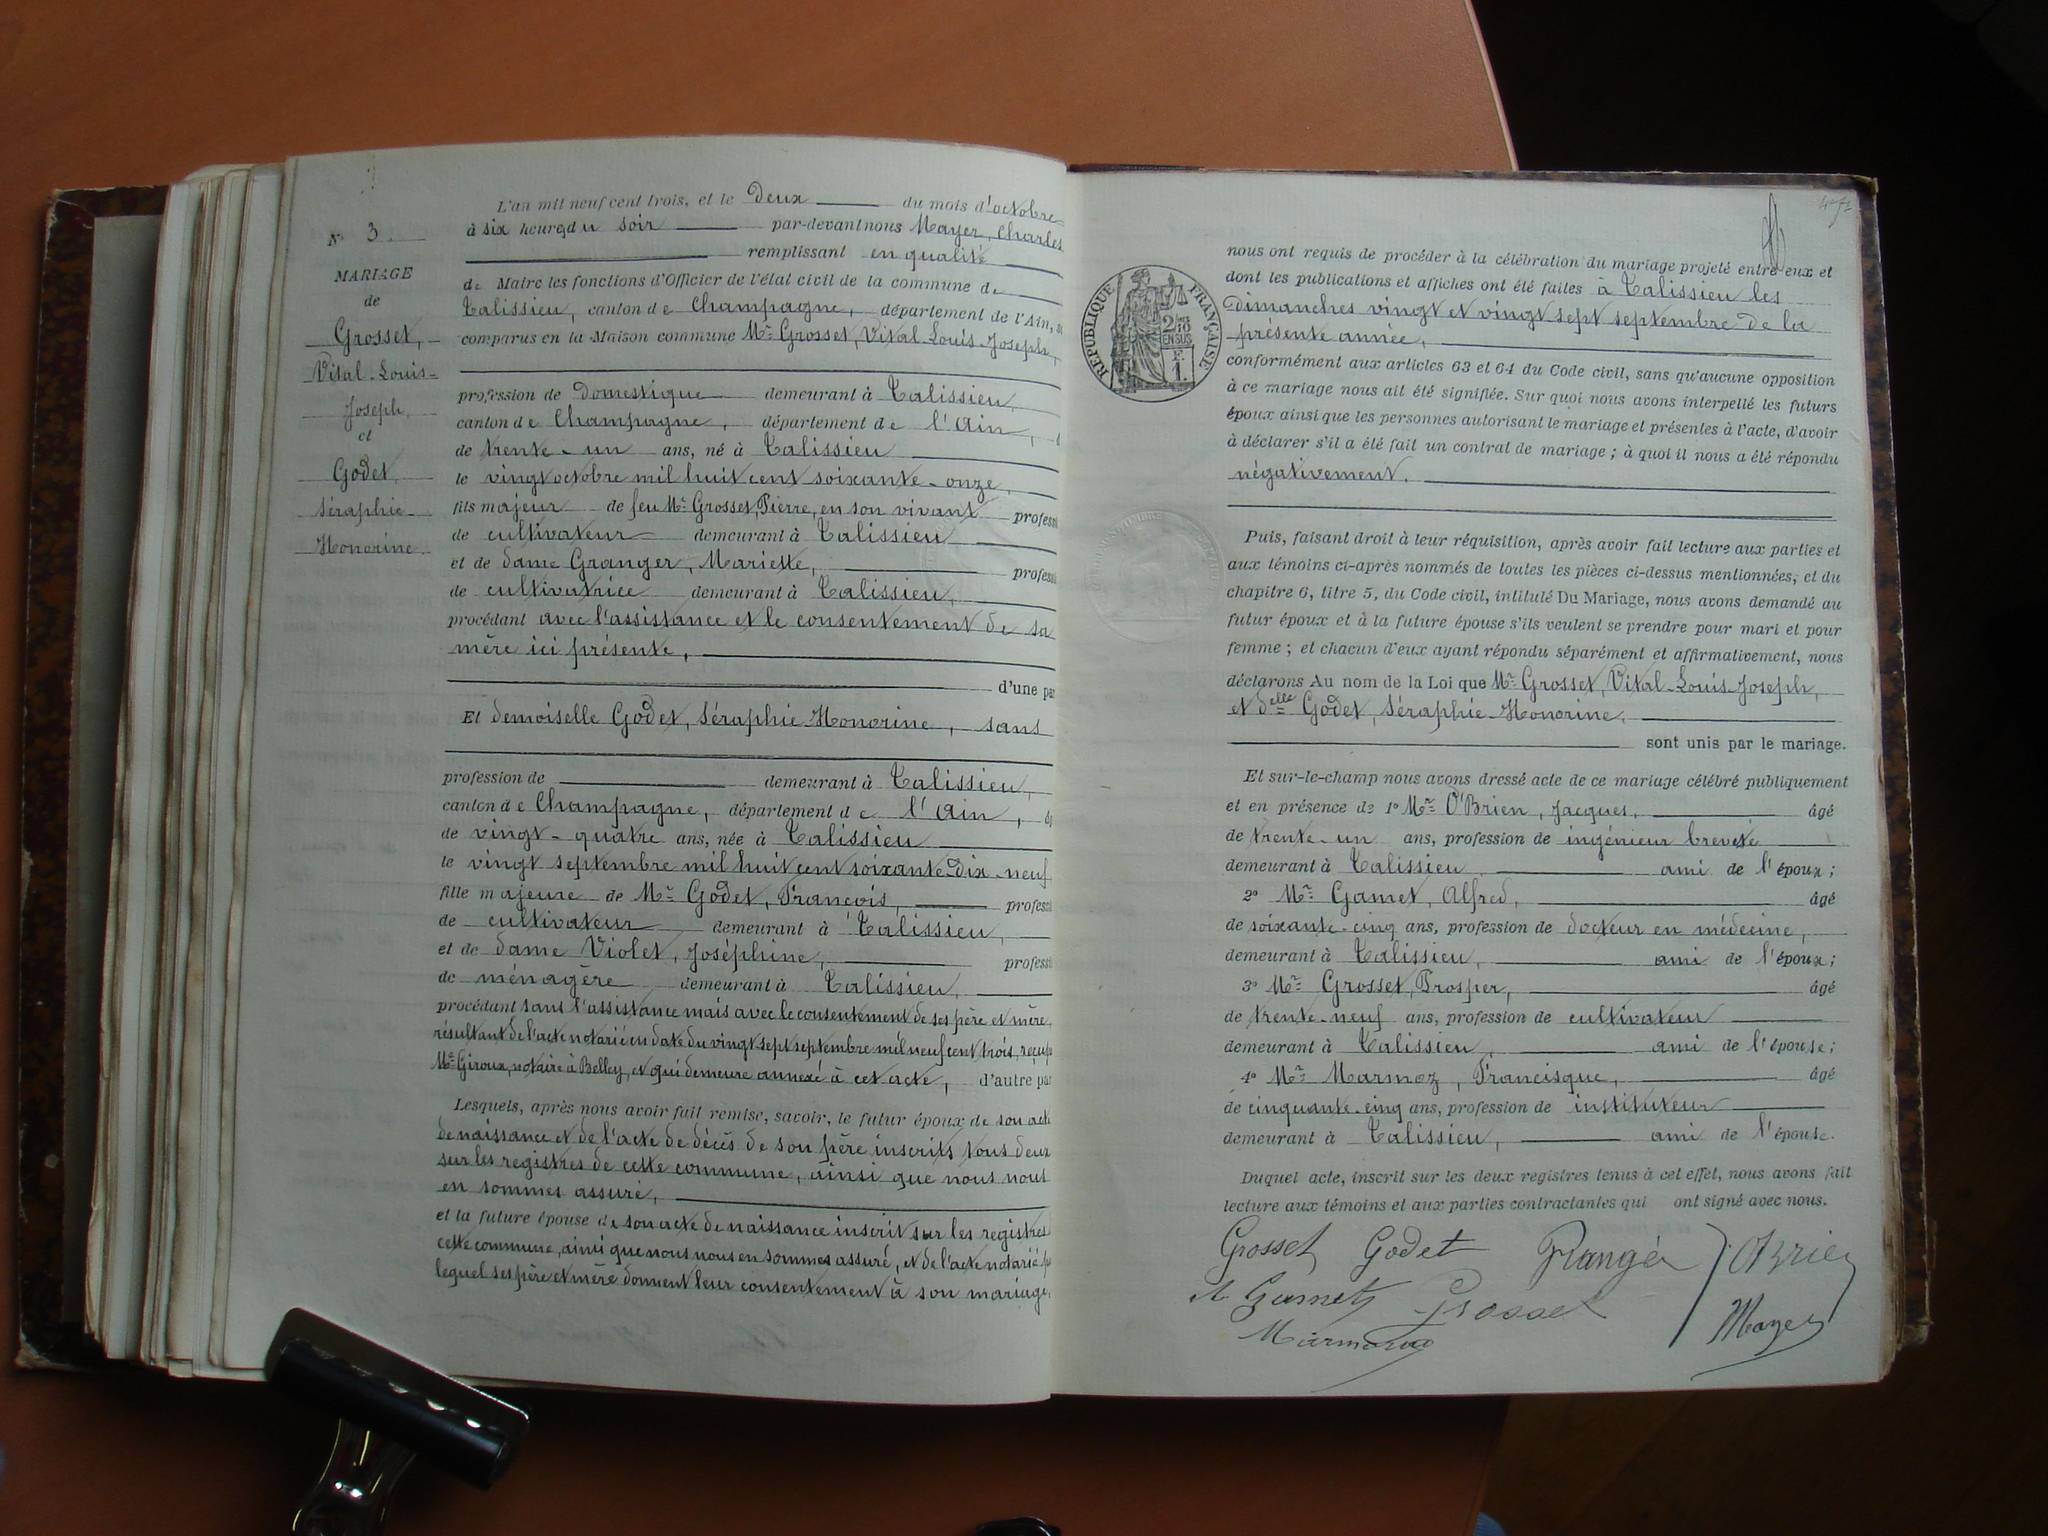 N° 3.
MARIAGE
de
Grosset,
Vital-Louis-
Joseph,
et
Godet,
Séraphie-
Honorine.
L'an mil neuf cent trois, et le deux du mois d'octobre
à six heures du soir par-devant nous Mayer, Charles
remplissant en qualité
de Maire les fonctions d'Officier de l'état civil de la commune de
Talissieu, canton de Champagne, département de l'Ain,
comparus en la Maison commune Mr Grosset, Vital-Louis-Joseph,
profession de domestique demeurant à Talissieu,
canton de Champagne, département de l'Ain,
de trente-un ans, né à Talissieu
le vingt octobre mil huit cent soixante-onze,
fils majeur de feu Mr Grosset, Pierre, en son vivant professi
de cultivateur demeurant à Talissieu
et de dame Granger, Mariette, professi
de cultivatrice demeurant à Talissieu,
procédant avec l'assistance et le consentement de sa
mère ici présente,
d'une par
Et demoiselle Godet, Séraphie-Honorine, sans
profession de demeurant à Talissieu,
canton de Champagne, département de l'Ain,
de vingt-quatre ans, née à Talissieu
le vingt septembre mil huit cent soixante-dix-neuf
fille majeure de Mr Godet, François, professi
de cultivateur demeurant à Talissieu,
et de dame Violet, Joséphine, professi
de ménagère demeurant à Talissieu,
procédant sans l'assistance mais avec le consentement de ses père et mère,
résultant de l'acte notarié en date du vingt sept septembre mil neuf cent trois, reçu p
Me Giroux, notaire à Belley, et qui demeure annexé à cet acte, d'autre par
Lesquels, après nous avoir fait remise, savoir, le futur époux de son acte
de naissance et de l'acte de décès de son père inscrits tous deux
sur les registres de cette commune, ainsi que nous nous
en sommes assuré,
et la future épouse de son acte de naissance inscrit sur les registres
cette commune, ainsi que nous nous en sommes assuré, et de l'acte notarié p
lequel ses père et mère donnent leur consentement à son mariage,
RÉPUBLIQUE FRANÇAISE
2/10 EN SUS
F. 1.
nous ont requis de procéder à la célébration du mariage projeté entre eux et
dont les publications et affiches ont été faites à Talissieu les
dimanches vingt et vingt sept septembre de la
présente année,
conformément aux articles 63 et 64 du Code civil, sans qu'aucune opposition
à ce mariage nous ait été signifiée. Sur quoi nous avons interpellé les futurs
époux ainsi que les personnes autorisant le mariage et présentes à l'acte, d'avoir
à déclarer s'il a été fait un contrat de mariage ; à quoi il nous a été répondu
négativement.
Puis, faisant droit à leur réquisition, après avoir fait lecture aux parties et
aux témoins ci-après nommés de toutes les pièces ci-dessus mentionnées, et du
chapitre 6, titre 5, du Code civil, intitulé Du Mariage, nous avons demandé au
futur époux et à la future épouse s'ils veulent se prendre pour mari et pour
femme ; et chacun d'eux ayant répondu séparément et affirmativement, nous
déclarons Au nom de la Loi que Mr Grosset, Vital-Louis-Joseph,
et delle Godet, Séraphie-Honorine,
sont unis par le mariage.
Et sur-le-champ nous avons dressé acte de ce mariage célébré publiquement
et en présence de 1° Mr O'Brien, Jacques, âgé
de trente-un ans, profession de ingénieur breveté
demeurant à Talissieu ami de l'époux ;
2° Mr Gamet, Alfred, âgé
de soixante-cinq ans, profession de docteur en médecine,
demeurant à Talissieu, ami de l'époux ;
3° Mr Grosset, Prosper, âgé
de trente-neuf ans, profession de cultivateur
demeurant à Talissieu, ami de l'épouse ;
4° Mr Marmoz, Francisque, âgé
de cinquante-cinq ans, profession de instituteur
demeurant à Talissieu, ami de l'épouse.
Duquel acte, inscrit sur les deux registres tenus à cet effet, nous avons fait
lecture aux témoins et aux parties contractantes qui ont signé avec nous.
Grosset Godet Grangér J. OBrien
A Gamet Grosset Mayer
Marmoz